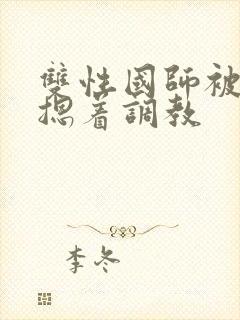 雙性國師被
摁着調教
李冬